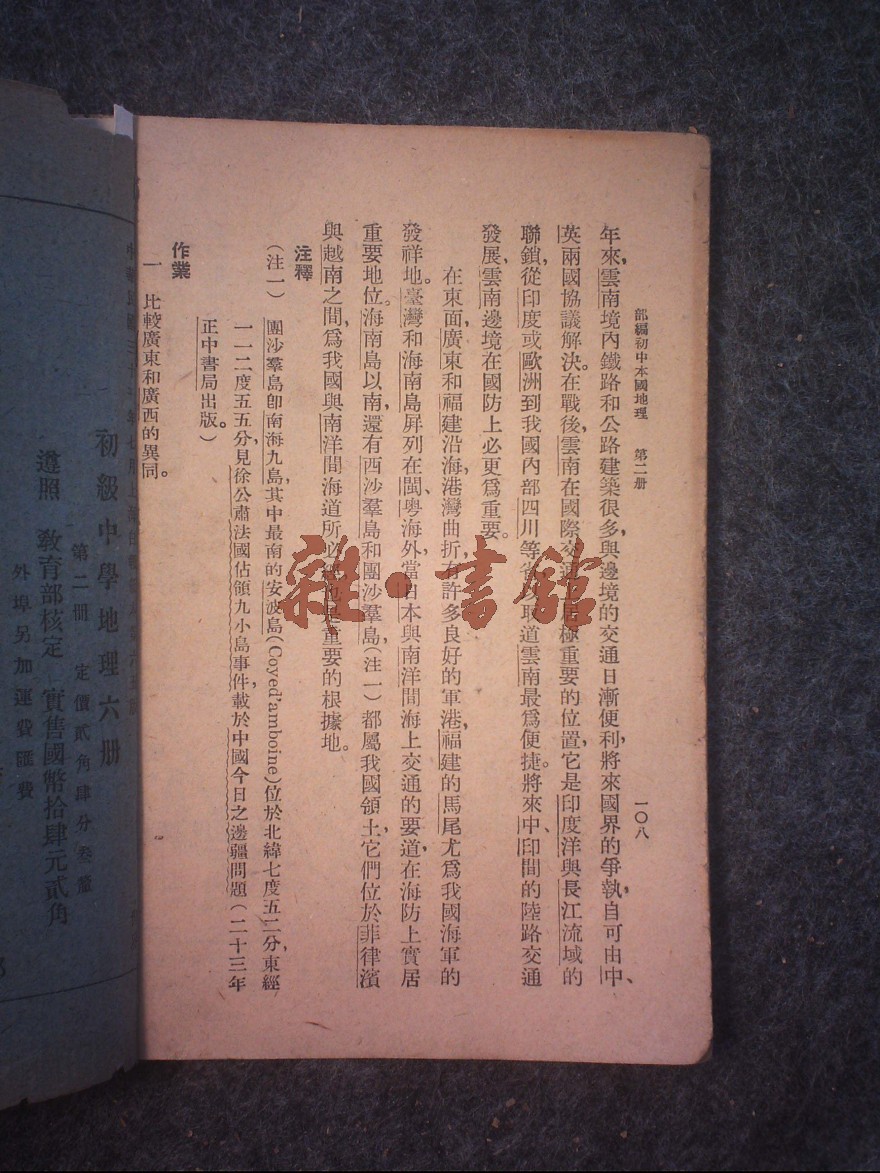 部編初中本國地理 第二册 一〇八
年來,雲南境內鐵路和公路建築很多,與邊境的交通日漸便利,將來國界的爭執,自可由中、
英兩國協議解決。在戰後,雲南在國際交通上居極重要的位置,它是印度洋與長江流域的
聯鎖,從印度或歐洲到我國內部四川等省,取道雲南最爲便捷。將來中、印間的陸路交通
發展,雲南邊境在國防上必更爲重要。
在東面,廣東和福建沿海,港灣曲折,有許多良好的軍港,福建的馬尾尤爲我國海軍的
發祥地。臺灣和海南島屏列在閩、粵海外,當日本與南洋間海上交通的要道,在海防上實居
重要地位。海南島以南,還有西沙羣島和團沙羣島(注一)都屬我國領土,它們位於菲律濱
與越南之間,爲我國與南洋間海道所必經,也是重要的根據地。
注釋
(注一) 團沙羣島卽南海九島,其中最南的安波島(Coyed'amboine)位於北緯七度五二分,東經
一一二度五五分,見徐公肅法國佔領九小島事件,載於中國今日之邊疆問題(二十三年
正中書局出版。)
作業
一 比較廣東和廣西的異同。
初級中學地理六册
第二冊 定價貳角肆分叁釐
遵照 教育部核定 實售國幣拾肆元貳角
外埠另加運費匯費
雜·書館